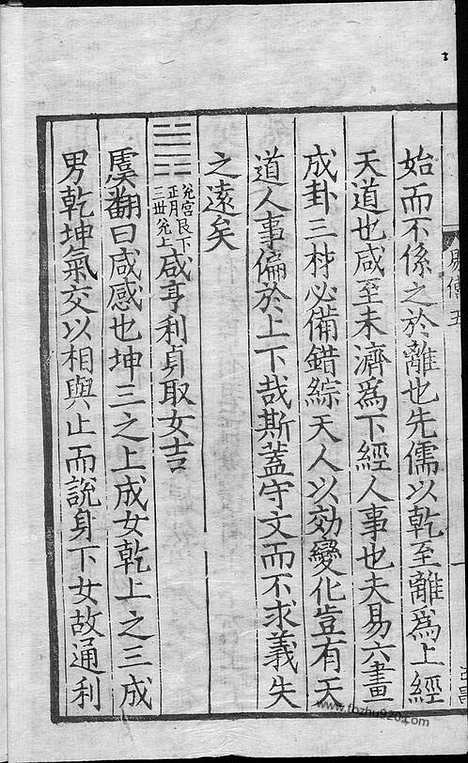 始而不係之於離也先儒以乾至離為上經
天道也咸至未濟為下經人事也夫易六畫
成卦三材必備錯綜天人以効變化豈有天
道人事偏於上下哉斯蓋守文而不求義失
之遠矣
兌宮艮下
正月
三世兌上
咸亨利貞取女吉
虞翻曰咸感也坤三之上成女乾上之三成
男乾坤氣交以相與止而說身下女故通利
www.fozhu920.com